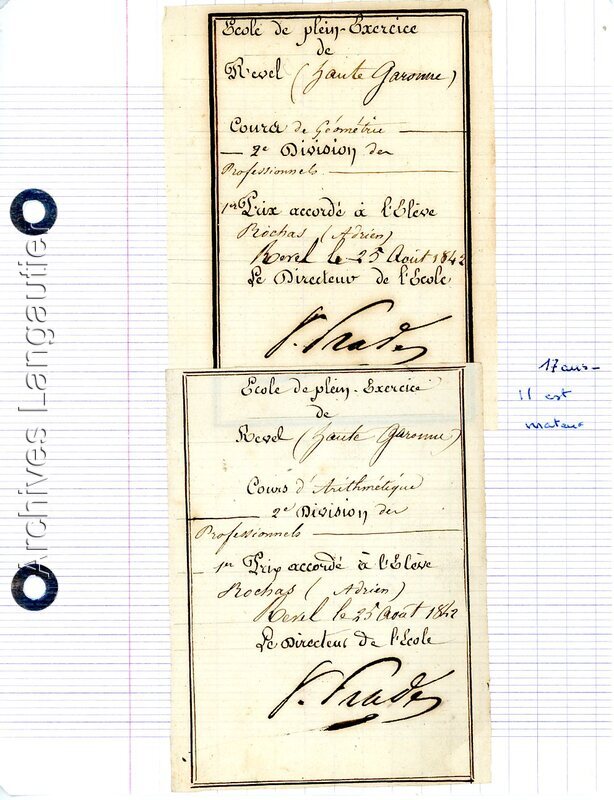 Ecole de plein-Exercice
de
Revel (haute Garonne)
Cours de Géométrie
2e Division des
Professionnels
1er Prix accordé à l'Elève
Rochas (Adrien)
Revel le 25 Août 1842
Le Directeur de l'Ecole
V. Prades
Ecole de plein-Exercice
de
Revel (haute Garonne)
Cours d'Arithmétique
2e Division des
Professionnels
1er Prix accordé à l'Elève
Rochas (Adrien)
Revel le 25 Août 1842
Le Directeur de l'Ecole
V. Prades
17 ans
Il est
Archives Langautier